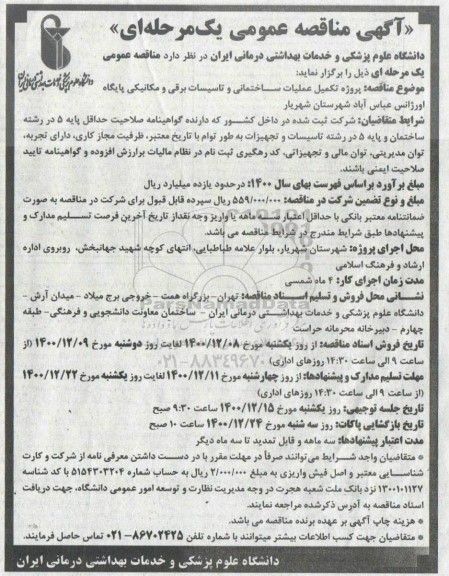 «آگهی مناقصه عمومی یک‌مرحله‌ای»
دانشگاه علوم پزشکی و خدمات بهداشتی درمانی ایران در نظر دارد مناقصه عمومی
یک مرحله ای ذیل را برگزار نماید:
موضوع مناقصه: پروژه تکمیل عملیات ساختمانی و تاسیسات برقی و مکانیکی پایگاه
اورژانس عباس آباد شهرستان شهریار
شرایط متقاضیان: شرکت ثبت شده در داخل کشور که دارنده گواهینامه صلاحیت حداقل پایه ۵ در رشته
ساختمان و پایه ۵ در رشته تاسیسات و تجهیزات به طور توام با تاریخ معتبر، ظرفیت مجاز کاری، دارای تجربه،
توان مدیریتی، توان مالی و تجهیزاتی، کد رهگیری ثبت نام در نظام مالیات برارزش افزوده و گواهینامه تایید
صلاحیت ایمنی باشند.
مبلغ برآورد براساس فهرست بهای سال ۱۴۰۰: درحدود یازده میلیارد ریال
مبلغ و نوع تضمین شرکت در مناقصه: ۵۵۹/۰۰۰/۰۰۰ ریال سپرده قابل قبول برای شرکت در مناقصه به صورت
ضمانتنامه معتبر بانکی با حداقل اعتبار سه ماهه یا واریز وجه نقداز تاریخ آخرین فرصت تسلیم مدارک و
پیشنهادها طبق شرایط مندرج در شرایط مناقصه می باشد.
محل اجرای پروژه: شهرستان شهریار، بلوار علامه طباطبایی، انتهای کوچه شهید جهانبخش، روبروی اداره
ارشاد و فرهنگ اسلامی
مدت زمان اجرای کار: ۴ ماه شمسی
نشانی محل فروش و تسلیم اسناد مناقصه: تهران – بزرگراه همت – خروجی برج میلاد – میدان آرش –
دانشگاه علوم پزشکی و خدمات بهداشتی درمانی ایران – ساختمان معاونت دانشجویی و فرهنگی – طبقه
چهارم – دبیرخانه محرمانه حراست
تاریخ فروش اسناد مناقصه: از روز یکشنبه مورخ ۱۴۰۰/۱۲/۰۸ لغایت روز دوشنبه مورخ ۱۴۰۰/۱۲/۰۹ (از
ساعت ۹ الی ساعت ۱۴:۳۰ روزهای اداری)
مهلت تسلیم مدارک و پیشنهادها: از روز چهارشنبه مورخ ۱۴۰۰/۱۲/۱۱ لغایت روز یکشنبه مورخ ۱۴۰۰/۱۲/۲۲
(از ساعت ۹ الی ساعت ۱۴:۳۰ روزهای اداری)
تاریخ جلسه توجیهی: روز یکشنبه مورخ ۱۴۰۰/۱۲/۱۵ ساعت ۹:۳۰ صبح
تاریخ بازگشایی پاکات: روز سه شنبه مورخ ۱۴۰۰/۱۲/۲۴ ساعت ۱۰ صبح
مدت اعتبار پیشنهادها: سه ماهه و قابل تمدید تا سه ماه دیگر
* متقاضیان واجد شرایط می‌توانند صرفاً در مهلت مقرر با در دست داشتن معرفی نامه از شرکت و کارت
شناسایی معتبر و اصل فیش واریزی به مبلغ ۲/۰۰۰/۰۰۰ ریال به حساب شماره ۵۱۵۴۳۰۳۲۰۴ با کد شناسه
۱۳۰۰۱۰۱۱۲۷ نزد بانک ملت شعبه هجرت در وجه مدیریت نظارت و توسعه امور عمومی دانشگاه، جهت دریافت
اسناد مناقصه به آدرس ذکرشده مراجعه نمایند.
* هزینه چاپ آگهی بر عهده برنده مناقصه می باشد.
* متقاضیان جهت کسب اطلاعات بیشتر میتوانند با شماره تلفن ۸۶۷۰۲۴۲۵-۰۲۱ تماس حاصل فرمایند.
دانشگاه علوم پزشکی و خدمات بهداشتی درمانی ایران